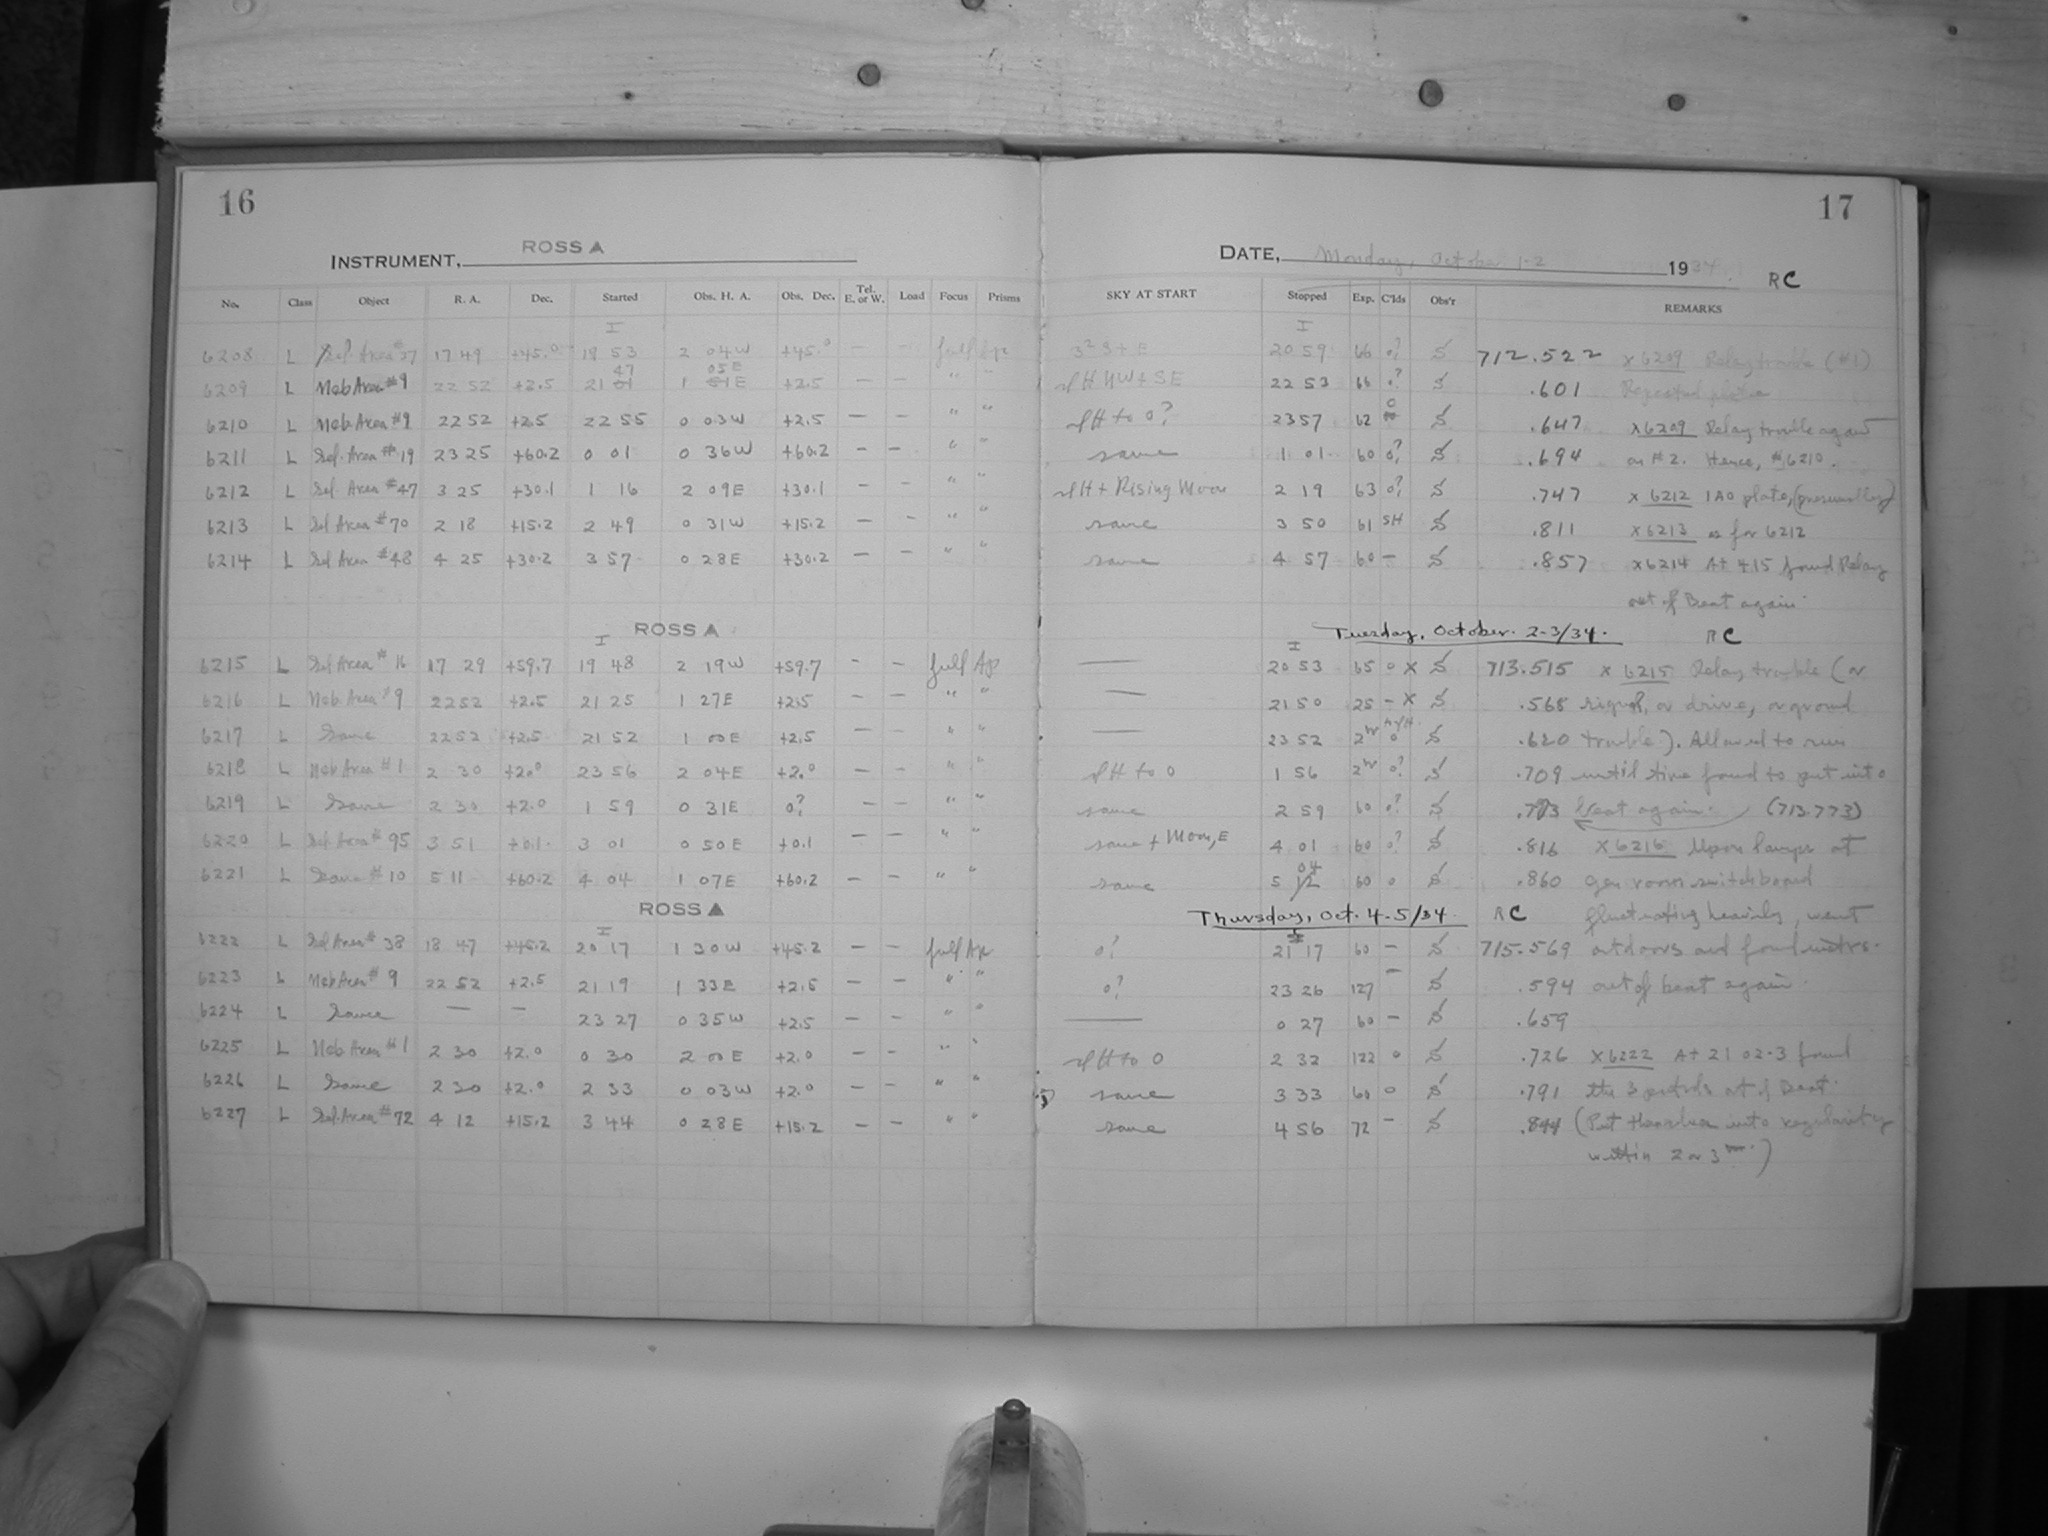 16
INSTRUMENT, ROSS A
No. Class Object R. A. Dec. Started Obs. H. A. Obs. Dec. Tel. E. or W. Load Focus Prisms
I
6208 L Sel. Area #37 17 49 +45.0 19 53 2 04W +45.0 — — full Ap
47 05E
6209 L Neb Area #9 22 52 +2.5 21 1 E +2.5 — — " "
6210 L Neb Area #9 22 52 +2.5 22 55 0 03W +2.5 — — " "
6211 L Sel. Area #19 23 25 +60.2 0 01 0 36W +60.2 — — " "
6212 L Sel Area #47 3 25 +30.1 1 16 2 09E +30.1 — — " "
6213 L Sel Area #70 2 18 +15.2 2 49 0 31W +15.2 — — " "
6214 L Sel Area #48 4 25 +30.2 3 57 0 28E +30.2 — — " "
ROSS A
I
6215 L Sel Area #16 17 29 +59.7 19 48 2 19W +59.7 — — full Ap
6216 L Neb Area #9 22 52 +2.5 21 25 1 27E +2.5 — — " "
6217 L Same 22 52 +2.5 21 52 1 00E +2.5 — — " "
6218 L Neb Area #1 2 30 +2.0 23 56 2 04E +2.0 — — " "
6219 L Same 2 30 +2.0 1 59 0 31E 0? — — " "
6220 L Sel Area #95 3 51 +0.1 3 01 0 50E +0.1 — — " "
6221 L Same #10 5 11 +60.2 4 04 1 07E +60.2 — — " "
ROSS A
I
6222 L Sel Area #38 18 47 +45.2 20 17 1 30W +45.2 — — full Ap
6223 L Neb Area #9 22 52 +2.5 21 19 1 33E +2.5 — — " "
6224 L Same — — 23 27 0 35W +2.5 — — " "
6225 L Neb Area #1 2 30 +2.0 0 30 2 00E +2.0 — — " "
6226 L Same 2 30 +2.0 2 33 0 03W +2.0 — — " "
6227 L Sel. Area #72 4 12 +15.2 3 44 0 28E +15.2 — — " "
17
DATE, Monday, October 1-2 1934 RC
SKY AT START Stopped Exp. C'lds Obs'r REMARKS
I
S+E 20 59 66 0? S 712.522 x6209 Relay trouble (#1)
NW+SE 22 53 66 0? S .601 Rejected plate
to 0? 23 57 62 0 S .647 x6209 Relay trouble again
same 1 01 60 0? S .694 as #2. Hence, #6210.
+ Rising Moon 2 19 63 0? S .747 x 6212 IAO plate, (presumably)
same 3 50 61 SH S .811 x6213 as for 6212
same 4 57 60 — S .857 x6214 At 4 15 found Relay
out of Beat again.
Tuesday, October. 2-3/34. RC
I
— 20 53 65 0 x S 713.515 x 6215 Relay trouble (or
— 21 50 25 — x S .568 signal, or drive, or ground
— 23 52 2hr 0 S .620 trouble). Allowed to run
to 0 1 56 2hr 0? S .709 until time found to put into
same 2 59 60 0? S .773 beat again. (713.773)
same + Moon, E 4 01 60 0? S .816 x6216 Upon lamps at
same 5 04 60 0 S .860 gen room switchboard
Thursday, Oct. 4-5/34. RC fluctuating heavily, went
I
0? 21 17 60 — S 715.569 outdoors and found
0? 23 26 127 — S .594 out of beat again.
— 0 27 60 — S .659
to 0 2 32 122 0 S .726 x6222 At 21 02.3 found
same 3 33 60 0 S .791 the 3 of Beat.
same 4 56 72 — S .844 (Put into regularity
within 2 or 3 m.)